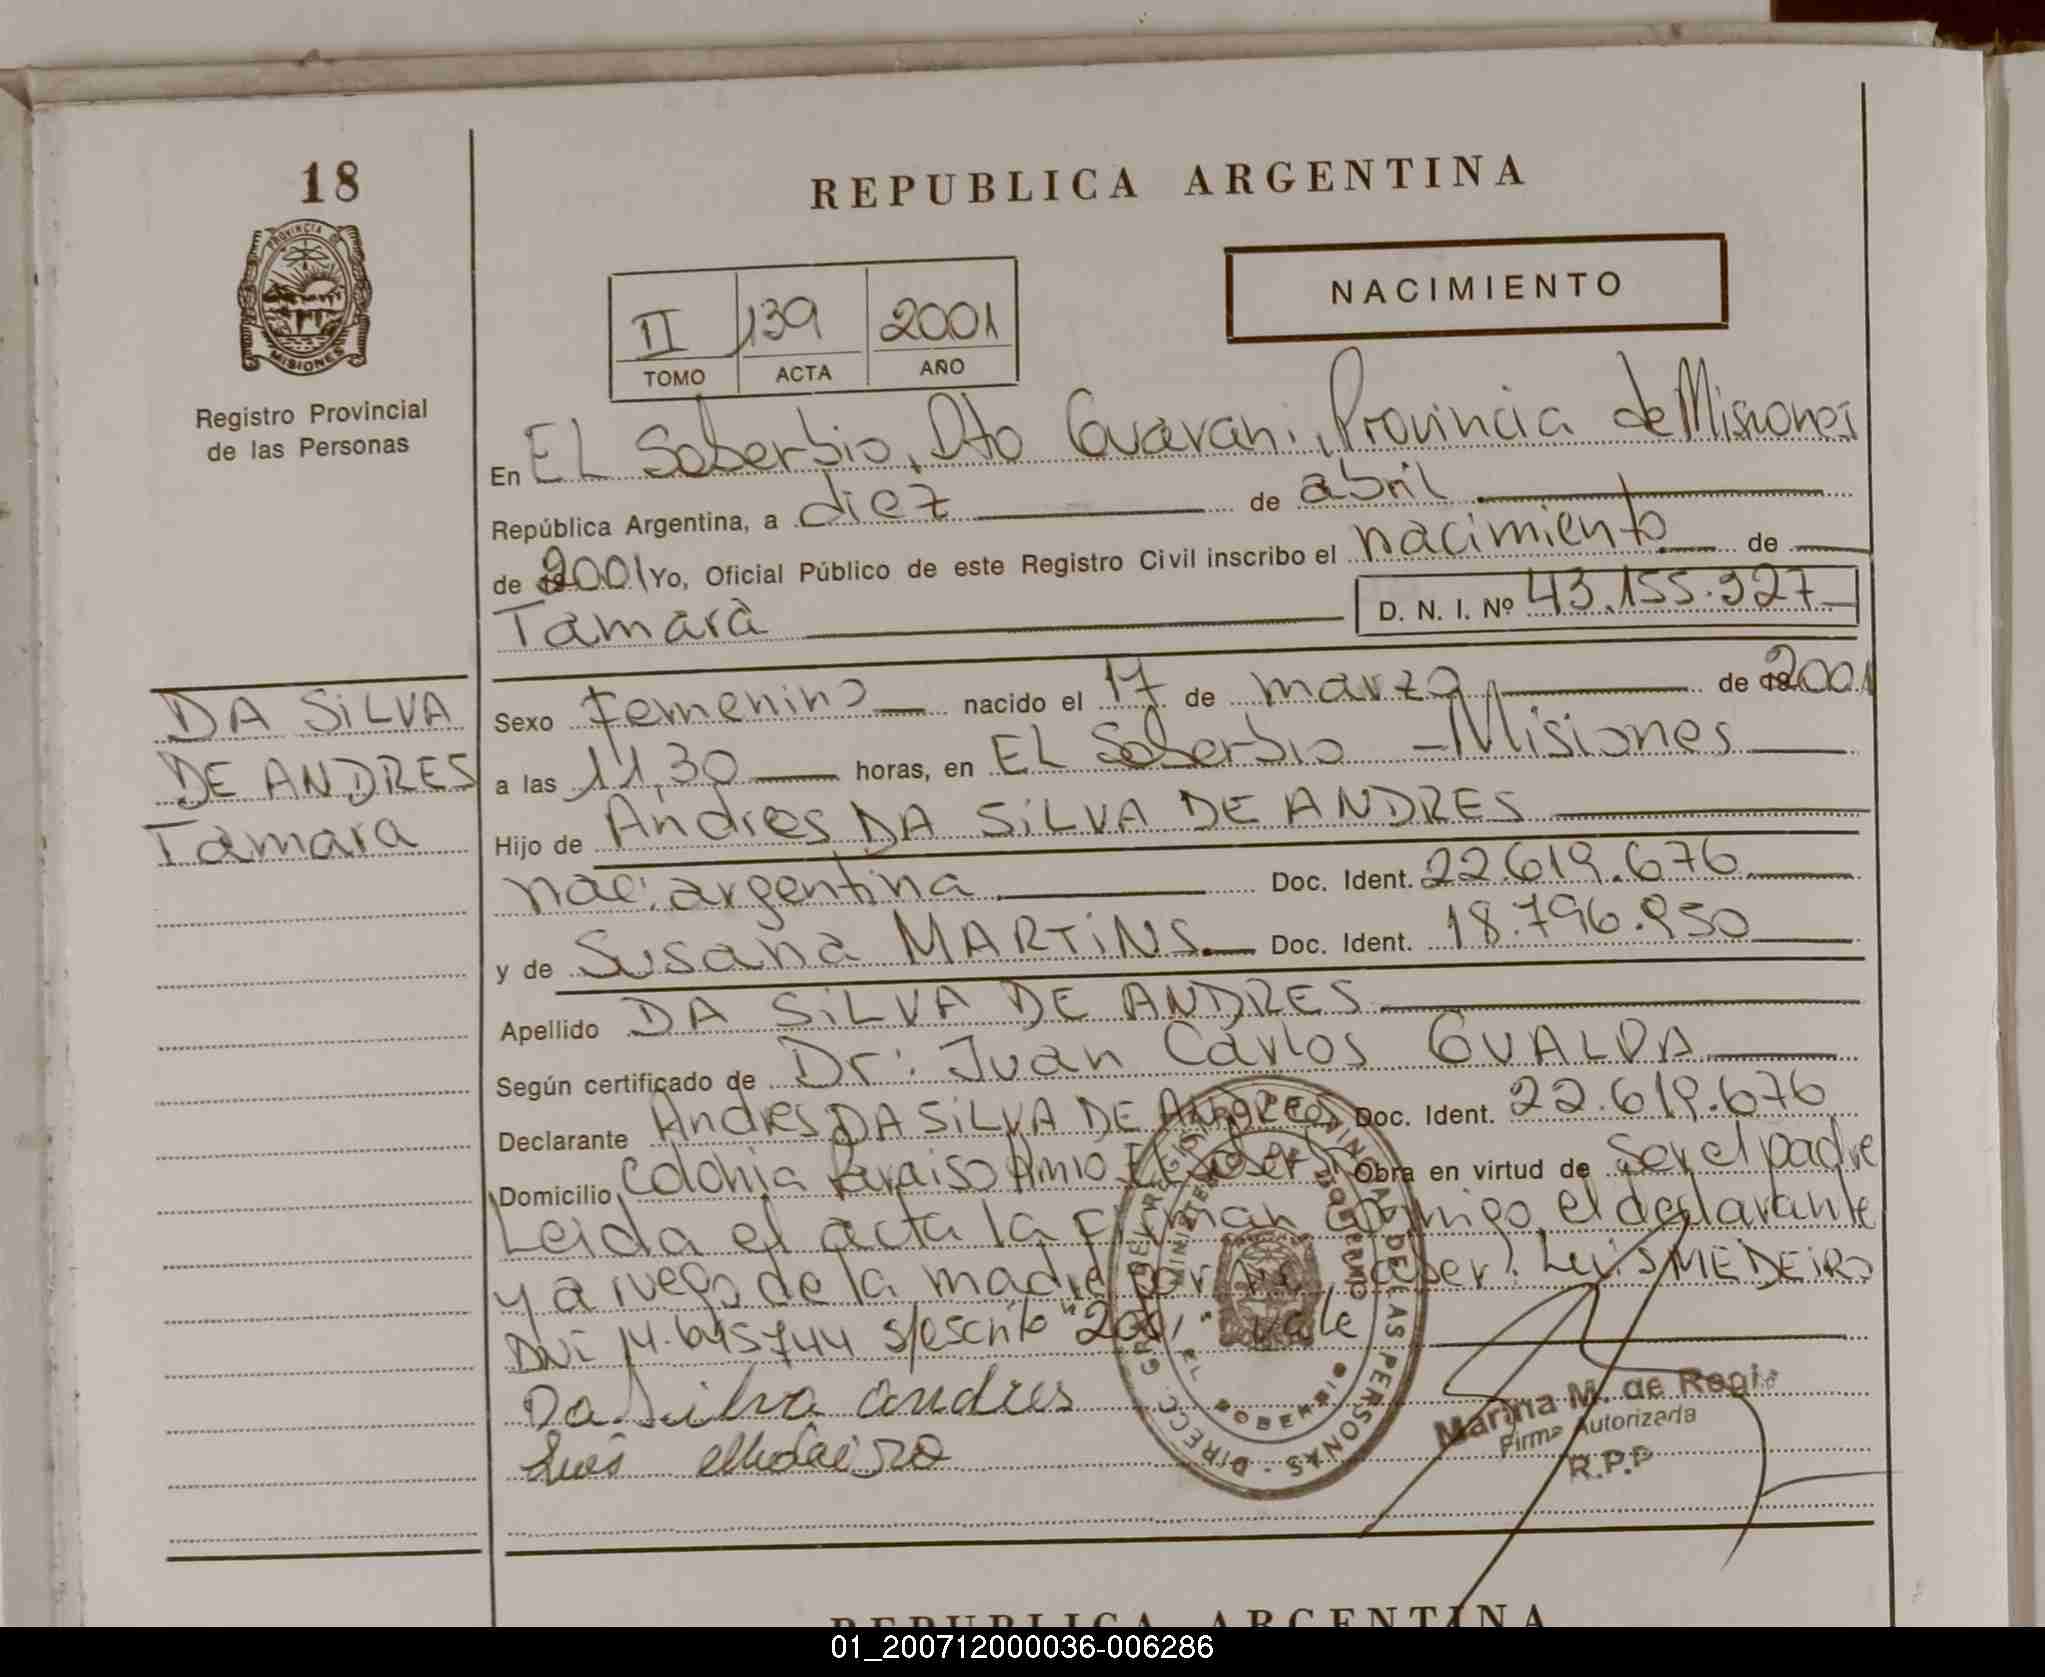 18
PROVINCIA DE
MISIONES
Registro Provincial
de las Personas
REPUBLICA ARGENTINA
NACIMIENTO
II 139 2001
TOMO ACTA AÑO
En EL Soberbio, Dto Guarani, Provincia de Misiones
República Argentina, a diez de abril
de 2001 Yo, Oficial Público de este Registro Civil inscribo el nacimiento de
Tamara D. N. I. Nº 43.155.927
DA SiLVA
DE ANDRES
Tamara
Sexo femenino nacido el 17 de marzo de 2001
a las 11,30 horas, en EL Soberbio - Misiones
Hijo de Andres DA SiLVA DE ANDRES
nac: argentina Doc. Ident. 22.619.676
y de Susana MARTiNS Doc. Ident. 18.796.950
Apellido DA SiLVA DE ANDRES
Según certificado de Dr: Juan Carlos GUALDA
Declarante Andres DA SiLVA DE ANDRES Doc. Ident. 22.619.676
Domicilio Colonia Paraiso Obra en virtud de ser el padre
Leida el acta la firman conmigo el declarante
y a ruego de la madre por Luis MEDEiRO
DNi 14.645744 s/escrito "2001" vale
Da Silva andres
Luis
Marina M. de
Firma Autorizada
R.P.P
DIRECC. GRAL. DEL REGISTRO PROVINCIAL DE LAS PERSONAS
MINISTERIO DE GOBIERNO
EL SOBERBIO
REPUBLICA ARGENTINA
01_200712000036-006286